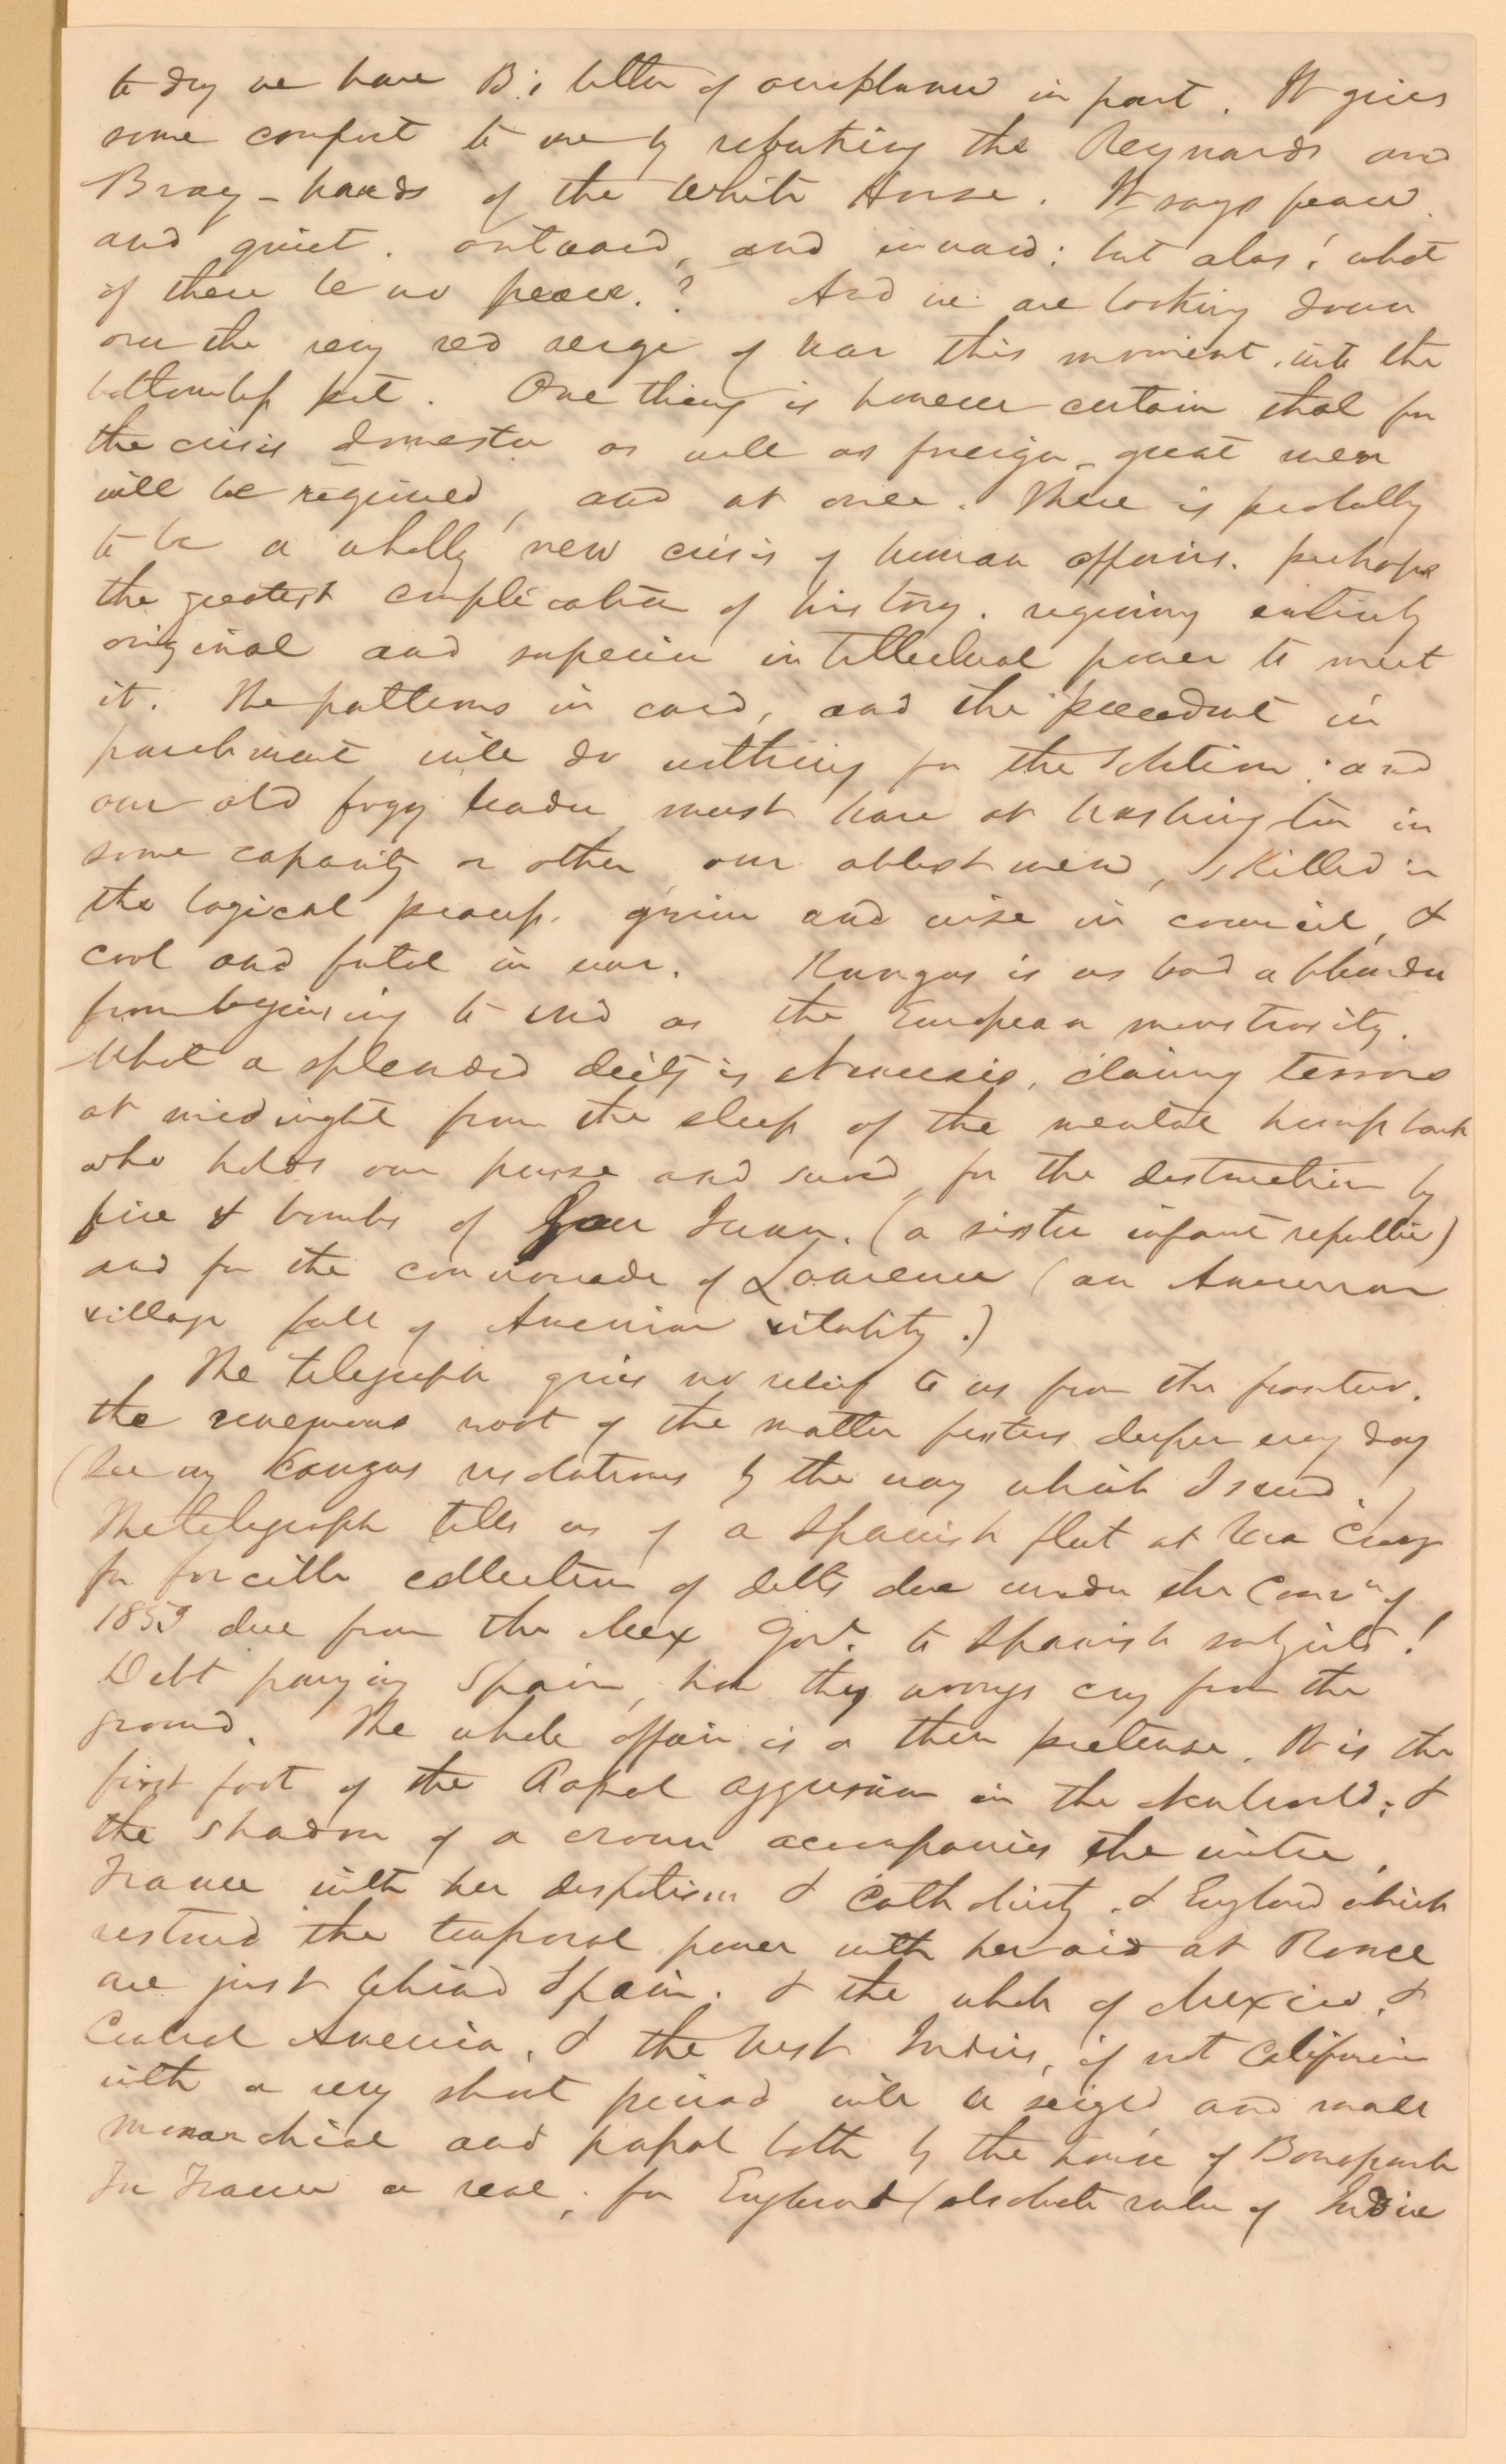 to day we have B's letter of acceptance in part. It gives
some comfort to me by rebuking the Reynards and
Bray-hards of the White House. It says peace
and quiet. outward, and inward: but alas! what
if there be no peace.? And we are looking down
over the very red verge of war this moment, into the
bottomless pit. One thing is however certain that for
the crisis domestic as well as foreign - great men
will be required, and at once. There is probably
to be a wholly new crisis of human affairs. perhaps
the greatest complication of history. requiring entirely
original and superior intellectual power to meet
it. The patterns in card, and the precedent in
parchment will do nothing for the solution: and
our old fogy leader must have at Washington in
some capacity or other our ablest men, skilled in
the logical process. grim and wise in council, &
cool and fatal in war. Kanzas is as bad a blunder
from beginning to end as the European monstrosity.
What a splendid deity is Nemesis, claiming terrors
at midnight from the sleep of the mental humpback
who holds our purse and sword, for the destruction by
fire & bombs of San Juan. (a sister infant republic)
and for the cannonade of Lawrence (an American
village full of American vitality.)
The telegraph gives no relief to us from the frontier.
the venemous root of the matter festers deeper every day
(See my Kanzas resolutions by the way which I send.)
The telegraph tells us of a Spanish fleet at Vera Cruz
for forcible collection of debts due under the Conv'n of
1853 due from the Mex Gov't. to Spanish subjects!
Debt paying Spain, how thy wrongs cry from the
ground. The whole affair is a thin pretense. It is the
first foot of the Papal aggression in the New World; &
the shadow of a crown accompanies the mitre.
France with her despotism & Catholicity, & England which
restored the temporal power with her aid at Rome
are just behind Spain. & the whole of Mexico, &
Central America, & the West Indies, if not California
with a very short period will be seized and made
monarchical and papal both by the house of Bonaparte
In France a real, for England (absolute ruler of India